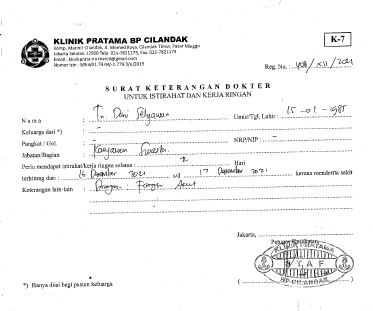 KLINIK PRATAMA BP CILANDAK
K-7
Komp. Marinir Cilandak, Jl. Merned Raya, Cilandak Timur, Pasar Minggu
Jakarta Selatan 12560 Telp. 021-7821175, Fax. 021-7821173
Reg. No. : /XII/2021
SURAT KETERANGAN DOKTER
UNTUK ISTIRAHAT DAN KERJA RINGAN
Nama : Tn. Deni Setyawan Umur/Tgl. Lahir : 15-01-1985
Keluarga dari *) : -
Pangkat / Gol. : - NRP/NIP : -
Jabatan/Bagian : Karyawan Swasta
Perlu mendapat istirahat/kerja ringan selama : 2 Hari
terhitung dari : 16 Desember 2021 s/d 17 Desember 2021 karena menderita sakit
Keterangan lain-lain :
Jakarta,
Petugas Kesehatan
KLINIK PRATAMA
STAF
BP CILANDAK
*) Hanya diisi bagi pasien keluarga